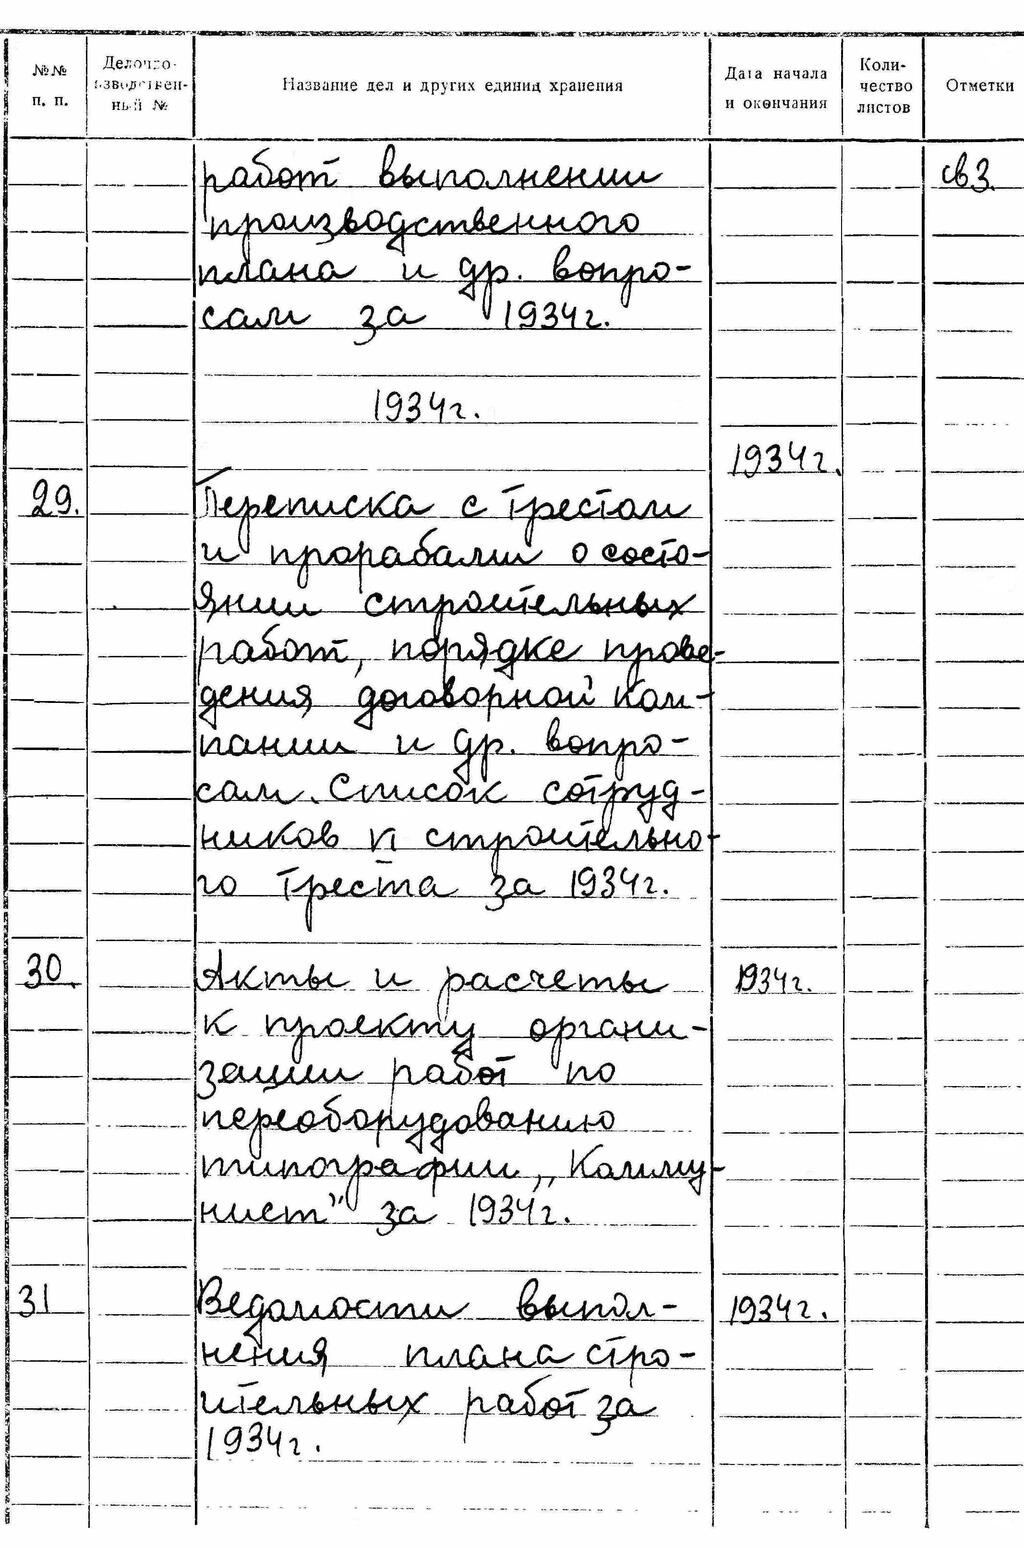 №№ п. п.
Делопро-
изводствен-
ный №
Название дел и других единиц хранения
Дата начала
и окончания
Коли-
чество
листов
Отметки
работ выполнении св 3.
производственного
плана и др. вопро-
сам за 1934г.
1934г.
1934г.
29. Переписка с трестом
и прорабами о состо-
янии строительных
работ, порядке прове-
дения договорной ком-
пании и др. вопро-
сам. Список сотруд-
ников VI строительно-
го треста за 1934г.
30. Акты и расчеты 1934г.
к проекту органи-
зации работ по
переоборудованию
типографии „Комму-
нист" за 1934г.
31 Ведомости выпол- 1934г.
нения плана стро-
ительных работ за
1934г.